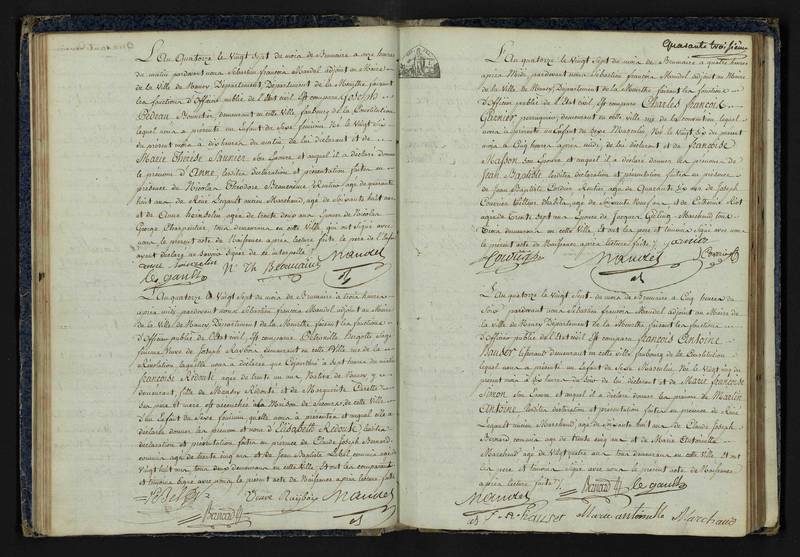 L'An Quatorze le Vingt Sept du mois de Brumaire à onze heures
du matin pardevant nous Sébastien françois Mandel adjoint au Maire
de la Ville de Nancy Département de la Meurthe faisant
les fonctions d'Officier public de l'Etat civil, Est comparu Joseph
demeurant en cette Ville faubourg de la Constitution
lequel nous a présenté un Enfant de Sexe féminin Né le Vingt six
du présent mois à dix heures du matin de lui déclarant et de
Marie Thérèse Saunier son Epouse et auquel il a déclaré donner
le prénom d'Anne, lesdites déclaration et présentation faites en
présence de Nicolas Théodore Rentier, âgé de quarante
huit ans de René Legault Marchand, âgé de Soixante huit ans
et de Anne âgée de trente deux ans Epouse de Nicolas
George Charpentier tous demeurans en cette Ville, qui ont signé avec
nous le présent acte de Naissance après lecture faite, le père de l'Enfant
ayant déclaré ne savoir signer de ce interpellé
le gault N. Th Mandel
L'An quatorze le Vingt Sept du mois de Brumaire à trois heures
après midi, pardevant nous Sébastien françois Mandel, adjoint au Maire
de la Ville de Nancy, Département de la Meurthe, faisant les fonctions
d'Officier public de l'Etat civil, Est comparue Pétronille Sage
femme Veuve de Joseph demeurant en cette Ville rue de la
Révolution, laquelle nous a déclaré que Cejourd'hui à sept heures du matin
françoise Rédouté âgée de trente un ans Native de Nancy y
demeurant, fille de Rédouté et de Marguerite
ses père et mère, est accouchée à la Maison de Secours de cette Ville
d'un Enfant de Sexe féminin qu'elle nous a présenté et auquel elle a
déclaré donner les prénom et nom d'Elisabeth Rédouté, lesdites
déclaration et présentation faites en présence de Claude Joseph Bernard,
commis âgé de trente cinq ans et de Jean Baptiste commis âgé de
Vingt huit ans, tous deux demeurans en cette Ville, Et ont les comparante
et témoins signé avec nous le présent acte de Naissance après lecture faite
Veuve Mandel
Bernard
Quarante troisième
L'An quatorze le Vingt Sept du mois de Brumaire à quatre heures
après Midi, pardevant nous Sébastien françois Mandel adjoint au Maire
de la Ville de Nancy, Département de la Meurthe faisant les fonctions
d'Officier public de l'Etat civil, Est comparu Charles françois
Garnier perruquier, demeurant en cette Ville rue de la Convention, lequel
nous a présenté un Enfant de Sexe Masculin Né le Vingt six du présent
mois à Cinq heures après midi, de lui déclarant et de françoise
Masson son Epouse et auquel il a déclaré donner les prénoms de
Jean Baptiste lesdites déclaration et présentation faites en présence
de Jean Baptiste Cordier Rentier âgé de Quarante six ans de Joseph
Tailleur d'habits, âgé de Soixante ans, et de Catherine
âgée de Trente Sept ans Epouse de Jacques Marchand, tous
trois demeurans en cette Ville. Et ont les père et témoins signé avec nous
le présent acte de Naissance, après lecture faite. garnier
Mandel
L'An quatorze le Vingt Sept du mois de Brumaire à Cinq heures du
Soir pardevant nous Sébastien françois Mandel adjoint au Maire
de la Ville de Nancy Département de la Meurthe faisant les fonctions
d'Officier public de l'Etat civil Est comparu françois Antoine
Hauser demeurant en cette Ville faubourg de la Constitution
lequel nous a présenté un Enfant de Sexe Masculin, Né le Vingt cinq du
présent mois à dix heures du Soir de lui déclarant et de Marie françoise
Simon son Epouse et auquel il a déclaré donner les prénoms de Martin
Antoine, lesdites déclaration et présentation faites en présence de René
Legault Marchand, âgé de Soixante huit ans de Claude Joseph
Bernard commis âgé de trente cinq ans et de Marie Antoinette
Marchand âgée de Vingt quatre ans tous demeurans en cette Ville. Et ont
les père et témoins signé avec nous le présent acte de Naissance
après lecture faite.
Mandel Bernard le gault
F. A. Hauser Marie antoinette Marchand